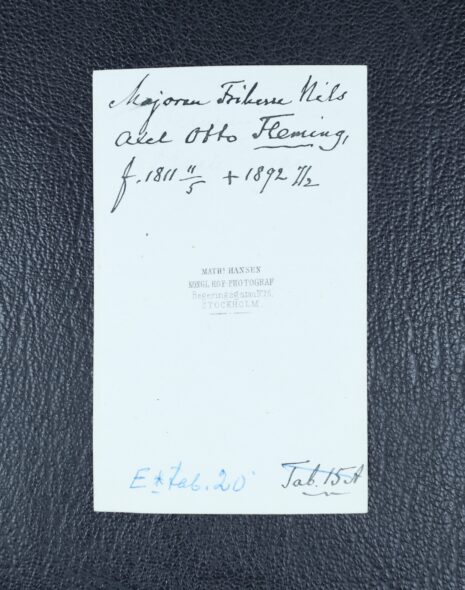 Majoren Friherre Nils
Axel Otto Fleming,
f. 1811 11/5 + 1892 7/2
MATHS HANSEN
KONGL HOF-PHOTOGRAF
Regeringsgatan
STOCKHOLM.
E * Tab. 20
Tab. 15 A